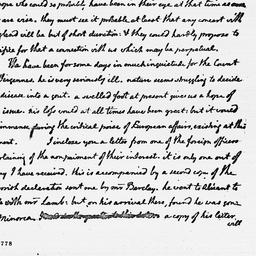 ope who could so probably have been in their eye at that time as ours
are vice. they must see it probable, at least that any concert with
gland will be but of short duration: & they could hardly propose to
ifice for that a connection with us which may be perpetual.
We have been for some days in much inquietude for the Count
Vergennes. he is very seriously ill. nature seems struggling to decide
disease into a gout. a swelled foot at present gives us a hope of
issue. his loss would at all times have been great: but it would
immense during the critical poise of European affairs, existing at this
ment. I inclose you a letter from one of the foreign officers
plaining of the nonpaiment of their interest. it is only one out of
ny I have received. this is accompanied by a second copy of the
orish declaration sent me by mr Barclay. he went to Alicant to
le with mr Lamb: but, on his arrival there, found he was gone
Minorca. a copy of his letter
will
778